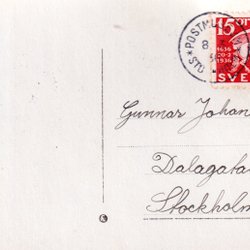 *POSTMU
8
STO
15 ÖR
1636
20-2
1936
SVE
Gunnar Johan
Dalagata
Stockholm